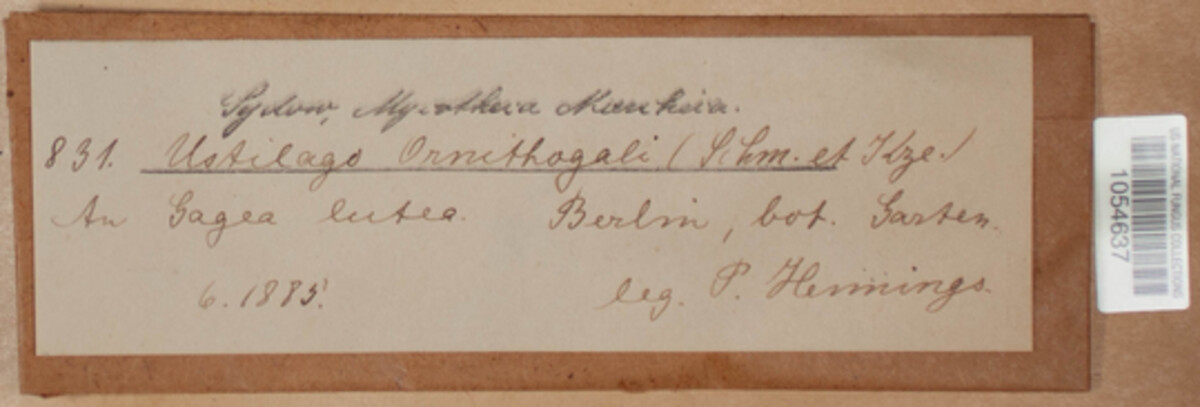 Sydow, Mycotheca Marchica.
831. Ustilago Ornithogali (Schm. et Kze.)
An Gagea lutea. Berlin, bot. Garten.
6. 1885. leg. P. Hennings.
US NATIONAL FUNGUS COLLECTIONS
1054637